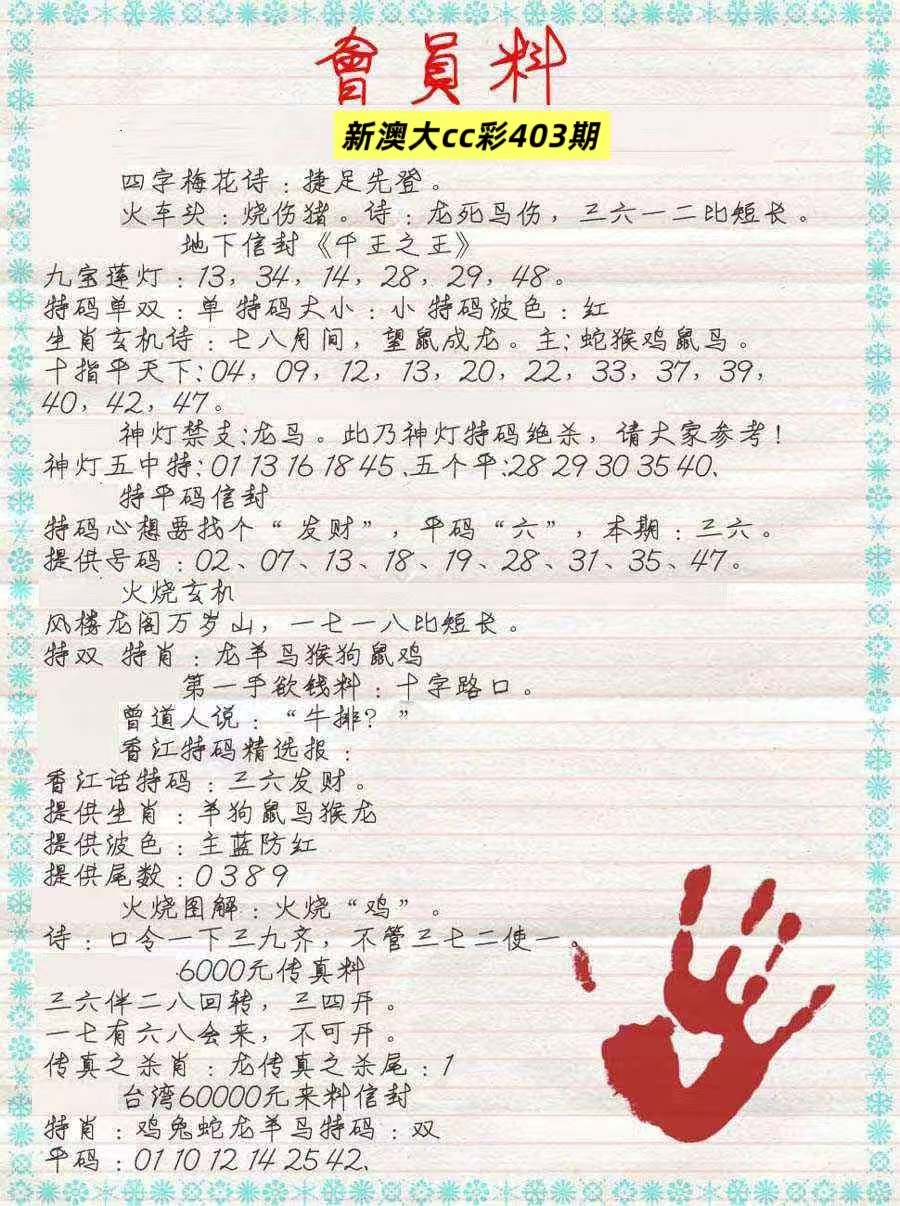 會員料
新澳大cc彩403期
四字梅花诗：捷足先登。
火车头：烧伤猪。诗：龙死鸟伤，三六一二比短长。
地下信封《千王之王》
九宝莲灯：13，34，14，28，29，48。
特码单双：单 特码大小：小 特码波色：红
生肖玄机诗：七八月间，望鼠成龙。主：蛇猴鸡鼠鸟。
十指平天下：04，09，12，13，20，22，33，37，39，
40，42，47。
神灯禁支：龙鸟。此乃神灯特码绝杀，请大家参考！
神灯五中特：01 13 16 18 45、五个平：28 29 30 35 40、
特平码信封
特码心想要找个“发财”，平码“六”，本期：三六。
提供号码：02、07、13、18、19、28、31、35、47。
火烧玄机
风楼龙阁万岁山，一七一八比短长。
特双 特肖：龙羊鸟猴狗鼠鸡
第一手欲钱料：十字路口。
曾道人说：“牛排？”
香江特码精选报：
香江话特码：三六发财。
提供生肖：羊狗鼠鸟猴龙
提供波色：主蓝防红
提供尾数：0 3 8 9
火烧图解：火烧“鸡”。
诗：口令一下三九齐，不管三七二使一。
6000元传真料
三六伴二八回转，三四开。
一七有六八会来，不可开。
传真之杀肖：龙传真之杀尾：1
台湾60000元来料信封
特肖：鸡兔蛇龙羊鸟特码：双
平码：01 10 12 14 25 42、